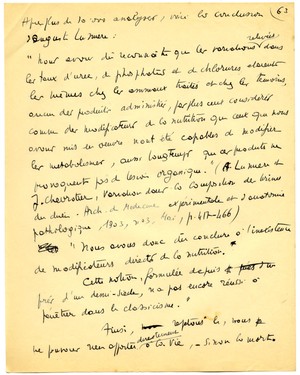 plus de 10 000 analyses, voici les conclusions 63
d'Auguste Lumière :
"Nous avons dû reconnaître que les variations relevées dans
les taux d'urée, de phosphates et de chlorures étaient
les mêmes chez les animaux traités et chez les témoins,
aucun des produits administrés, pas plus ceux considérés
comme des modificateurs de la nutrition que ceux que nous
avons mis en œuvre n'ont été capables de modifier
les métabolismes, aussi longtemps que ces produits ne
provoquent pas de lésion organique." (A. Lumière et
J. Chevrotier, Variation dans la composition des urines
du chien. Arch. de Médecine expérimentale et d'anatomie
pathologique, 1903, n°3, Mai, p. 417-466)
"Nous avons donc dû conclure à l'inexistence
de modificateurs directs de la nutrition.
Cette notion, formulée depuis
près d'un demi-siècle, n'a pas encore réussi à
pénétrer dans le classicisme."
Ainsi, répétons le, nous
ne pouvons rien apporter directement à la Vie, sinon la mort.